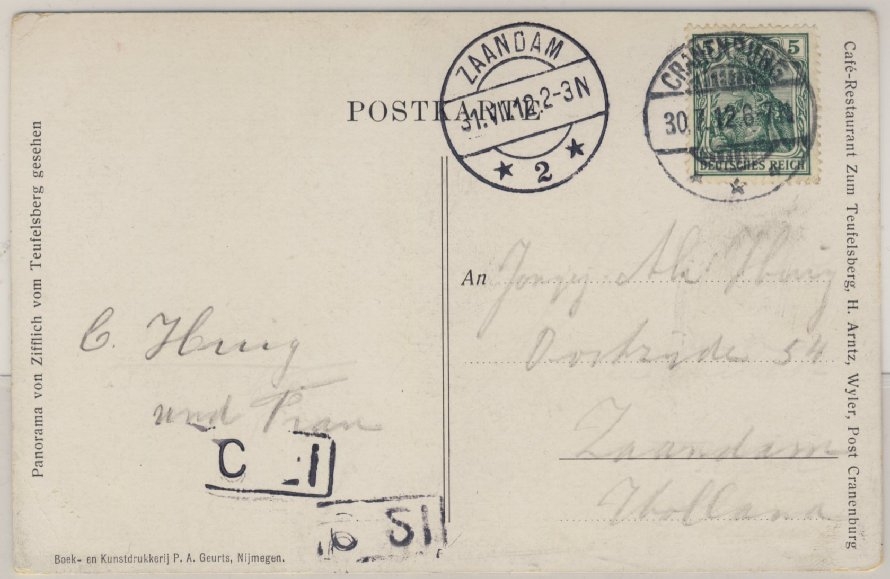 POSTKARTE
ZAANDAM
31.VII.12.2-3N
2
CRANENBURG
30.7.12.6-7N
5
DEUTSCHES REICH
Panorama von Zifflich vom Teufelsberg gesehen
C. Huig
und Frau
C I
SI
Boek- en Kunstdrukkerij P. A. Geurts, Nijmegen.
An Ali Huig
Oostzijde 54
Zaandam
Holland
Café-Restaurant Zum Teufelsberg, H. Arntz, Wyler, Post Cranenburg